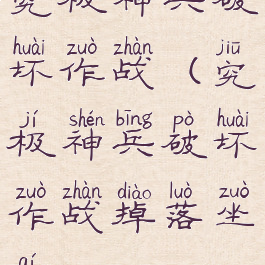 究极神兵破
huài zuò zhàn jiū
坏作战（究
jí shén bīng pò huài
极神兵破坏
zuò zhàn diào luò zuò
作战掉落坐